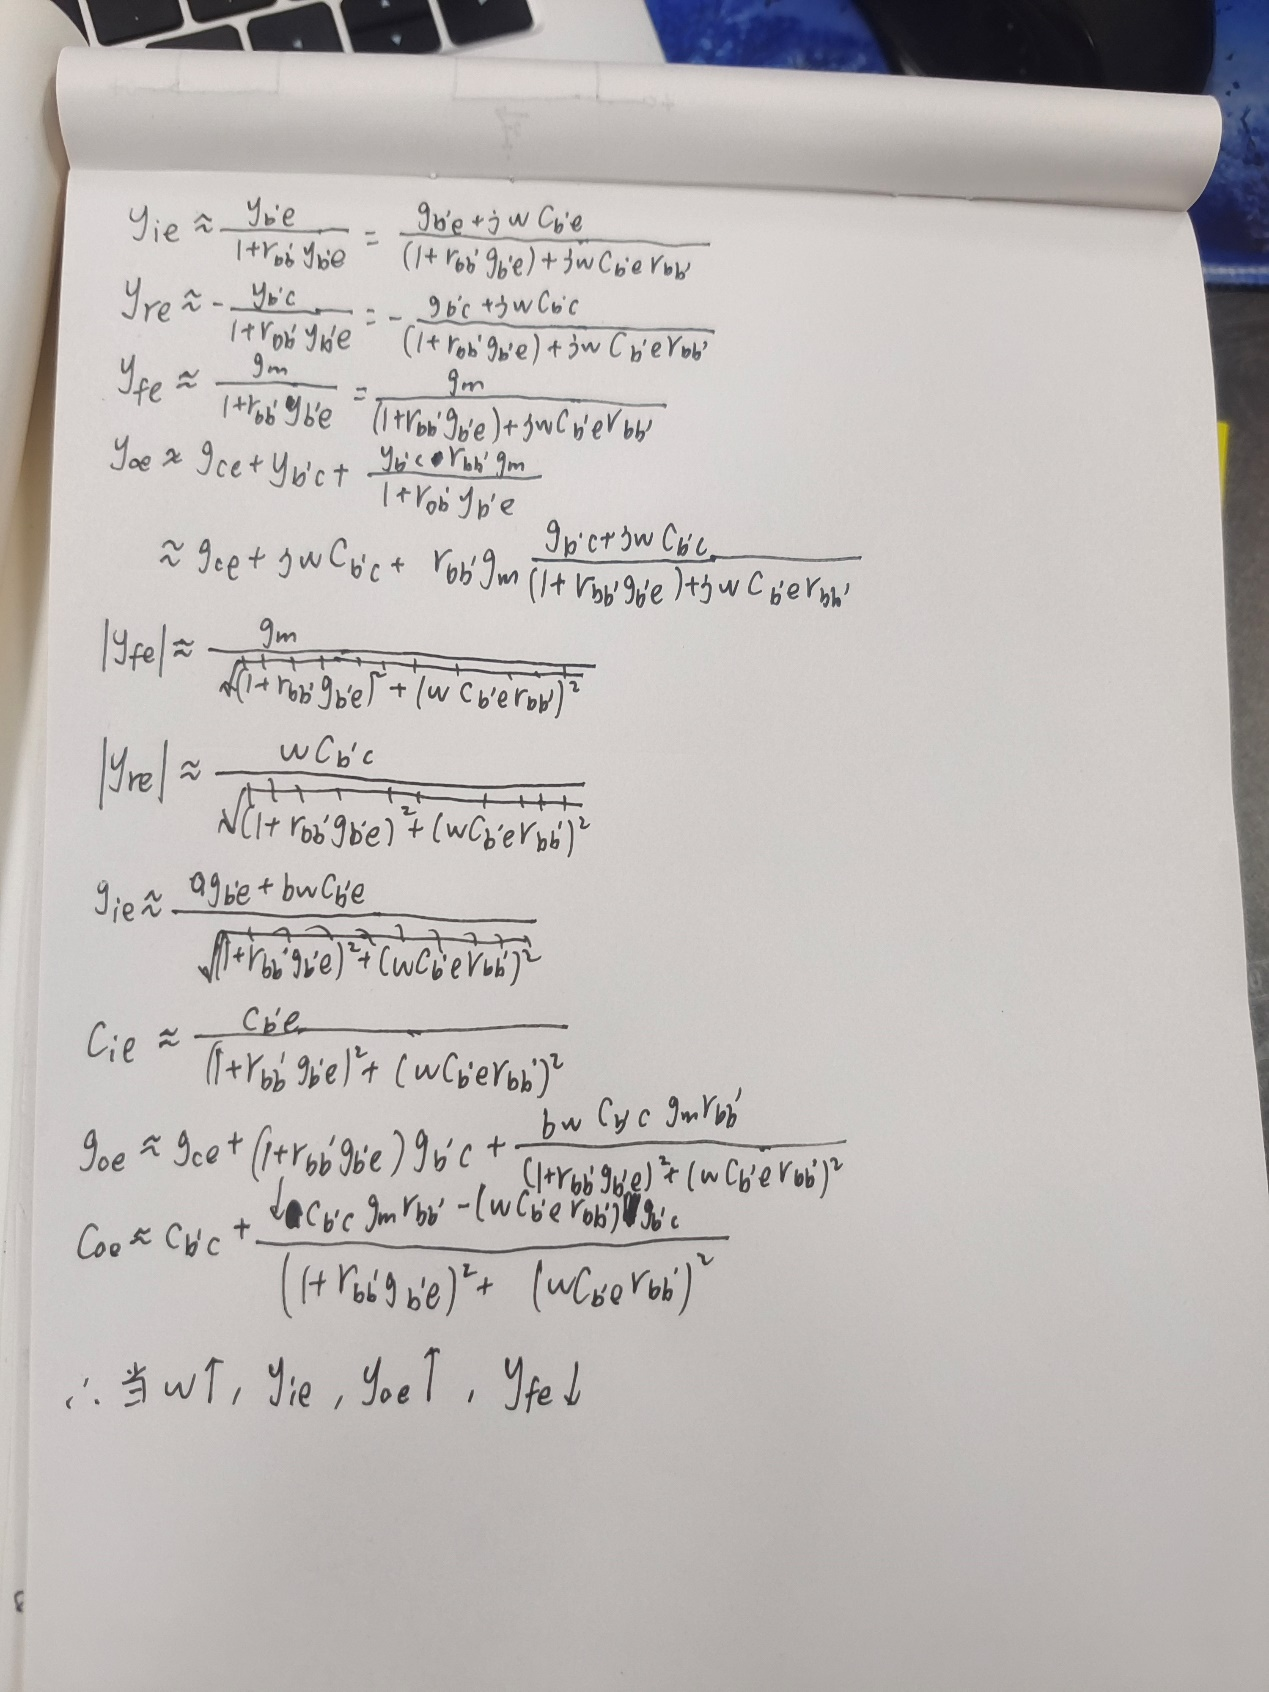 yie ≈ yb'e / (1+rbb' yb'e) = (gb'e + jwCb'e) / ((1+rbb' gb'e) + jwCb'e rbb')
yre ≈ - yb'c / (1+rbb' yb'e) = - (gb'c + jwCb'c) / ((1+rbb' gb'e) + jwCb'e rbb')
yfe ≈ gm / (1+rbb' yb'e) = gm / ((1+rbb' gb'e) + jwCb'e rbb')
yoe ≈ gce + yb'c + yb'c rbb' gm / (1+rbb' yb'e)
≈ gce + jwCb'c + rbb' gm (gb'c + jwCb'c) / ((1+rbb' gb'e) + jwCb'e rbb')
|yfe| ≈ gm / √((1+rbb' gb'e)² + (wCb'e rbb')²)
|yre| ≈ wCb'c / √((1+rbb' gb'e)² + (wCb'e rbb')²)
gie ≈ (agb'e + bwCb'e) / √((1+rbb' gb'e)² + (wCb'e rbb')²)
Cie ≈ Cb'e / ((1+rbb' gb'e)² + (wCb'e rbb')²)
goe ≈ gce + (1+rbb' gb'e) gb'c + bwCb'c gm rbb' / ((1+rbb' gb'e)² + (wCb'e rbb')²)
Coe ≈ Cb'c + (Cb'c gm rbb' - (wCb'e rbb') gb'c) / ((1+rbb' gb'e)² + (wCb'e rbb')²)
∴ 当 w↑, yie, yoe↑, yfe↓